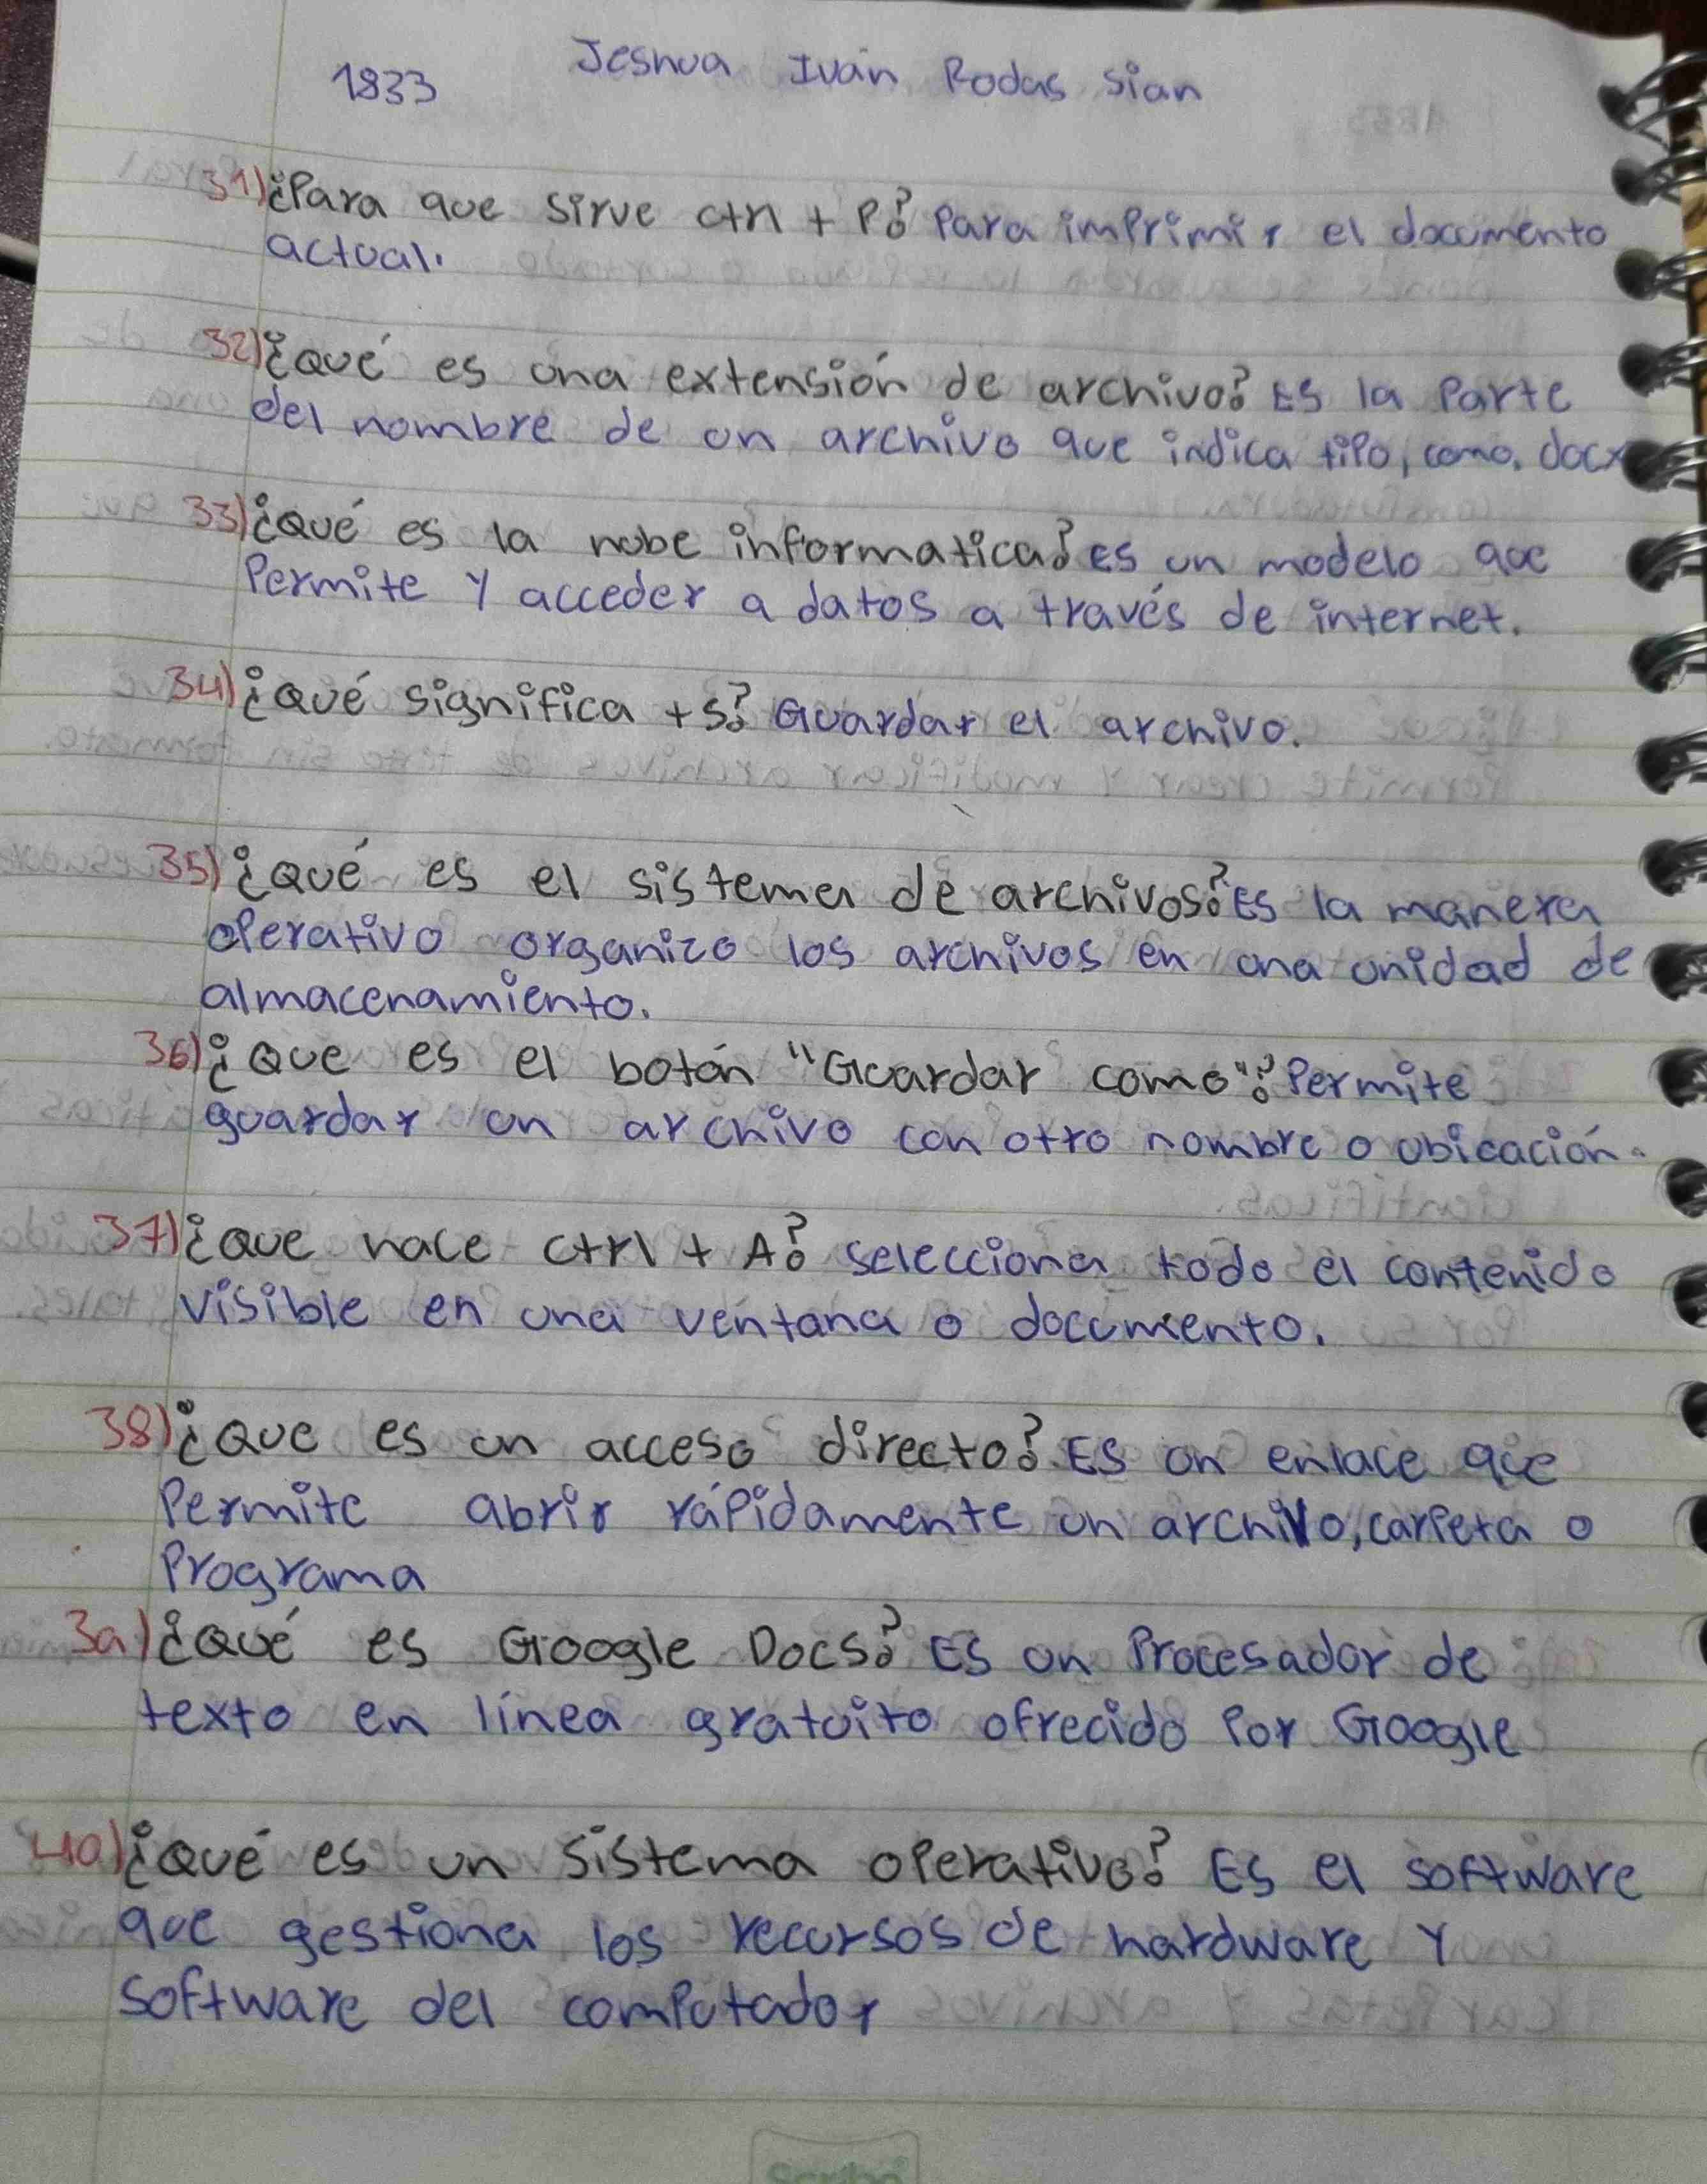 1833 Jeshua Iván Rodas Sian
31) ¿Para que sirve ctrl + P? Para imprimir el documento
actual.
32) ¿Qué es una extensión de archivo? Es la Parte
del nombre de un archivo que indica tipo, como. docx
33) ¿Qué es la nube informatica? Es un modelo que
Permite y acceder a datos a través de internet.
34) ¿Qué significa + S? Guardar el archivo.
35) ¿Qué es el sistema de archivos? Es la manera
operativo organizo los archivos en una unidad de
almacenamiento.
36) ¿Que es el botón "Guardar como"? Permite
guardar un archivo con otro nombre o ubicación.
37) ¿que hace ctrl + A? selecciona todo el contenido
visible en una ventana o documento.
38) ¿Que es un acceso directo? Es un enlace que
Permite abrir rápidamente un archivo, carpeta o
Programa
39) ¿Qué es Google Docs? Es un Procesador de
texto en línea gratuito ofrecido Por Google
40) ¿Qué es un sistema operativo? Es el software
que gestiona los recursos de hardware y
software del computador
Scribe